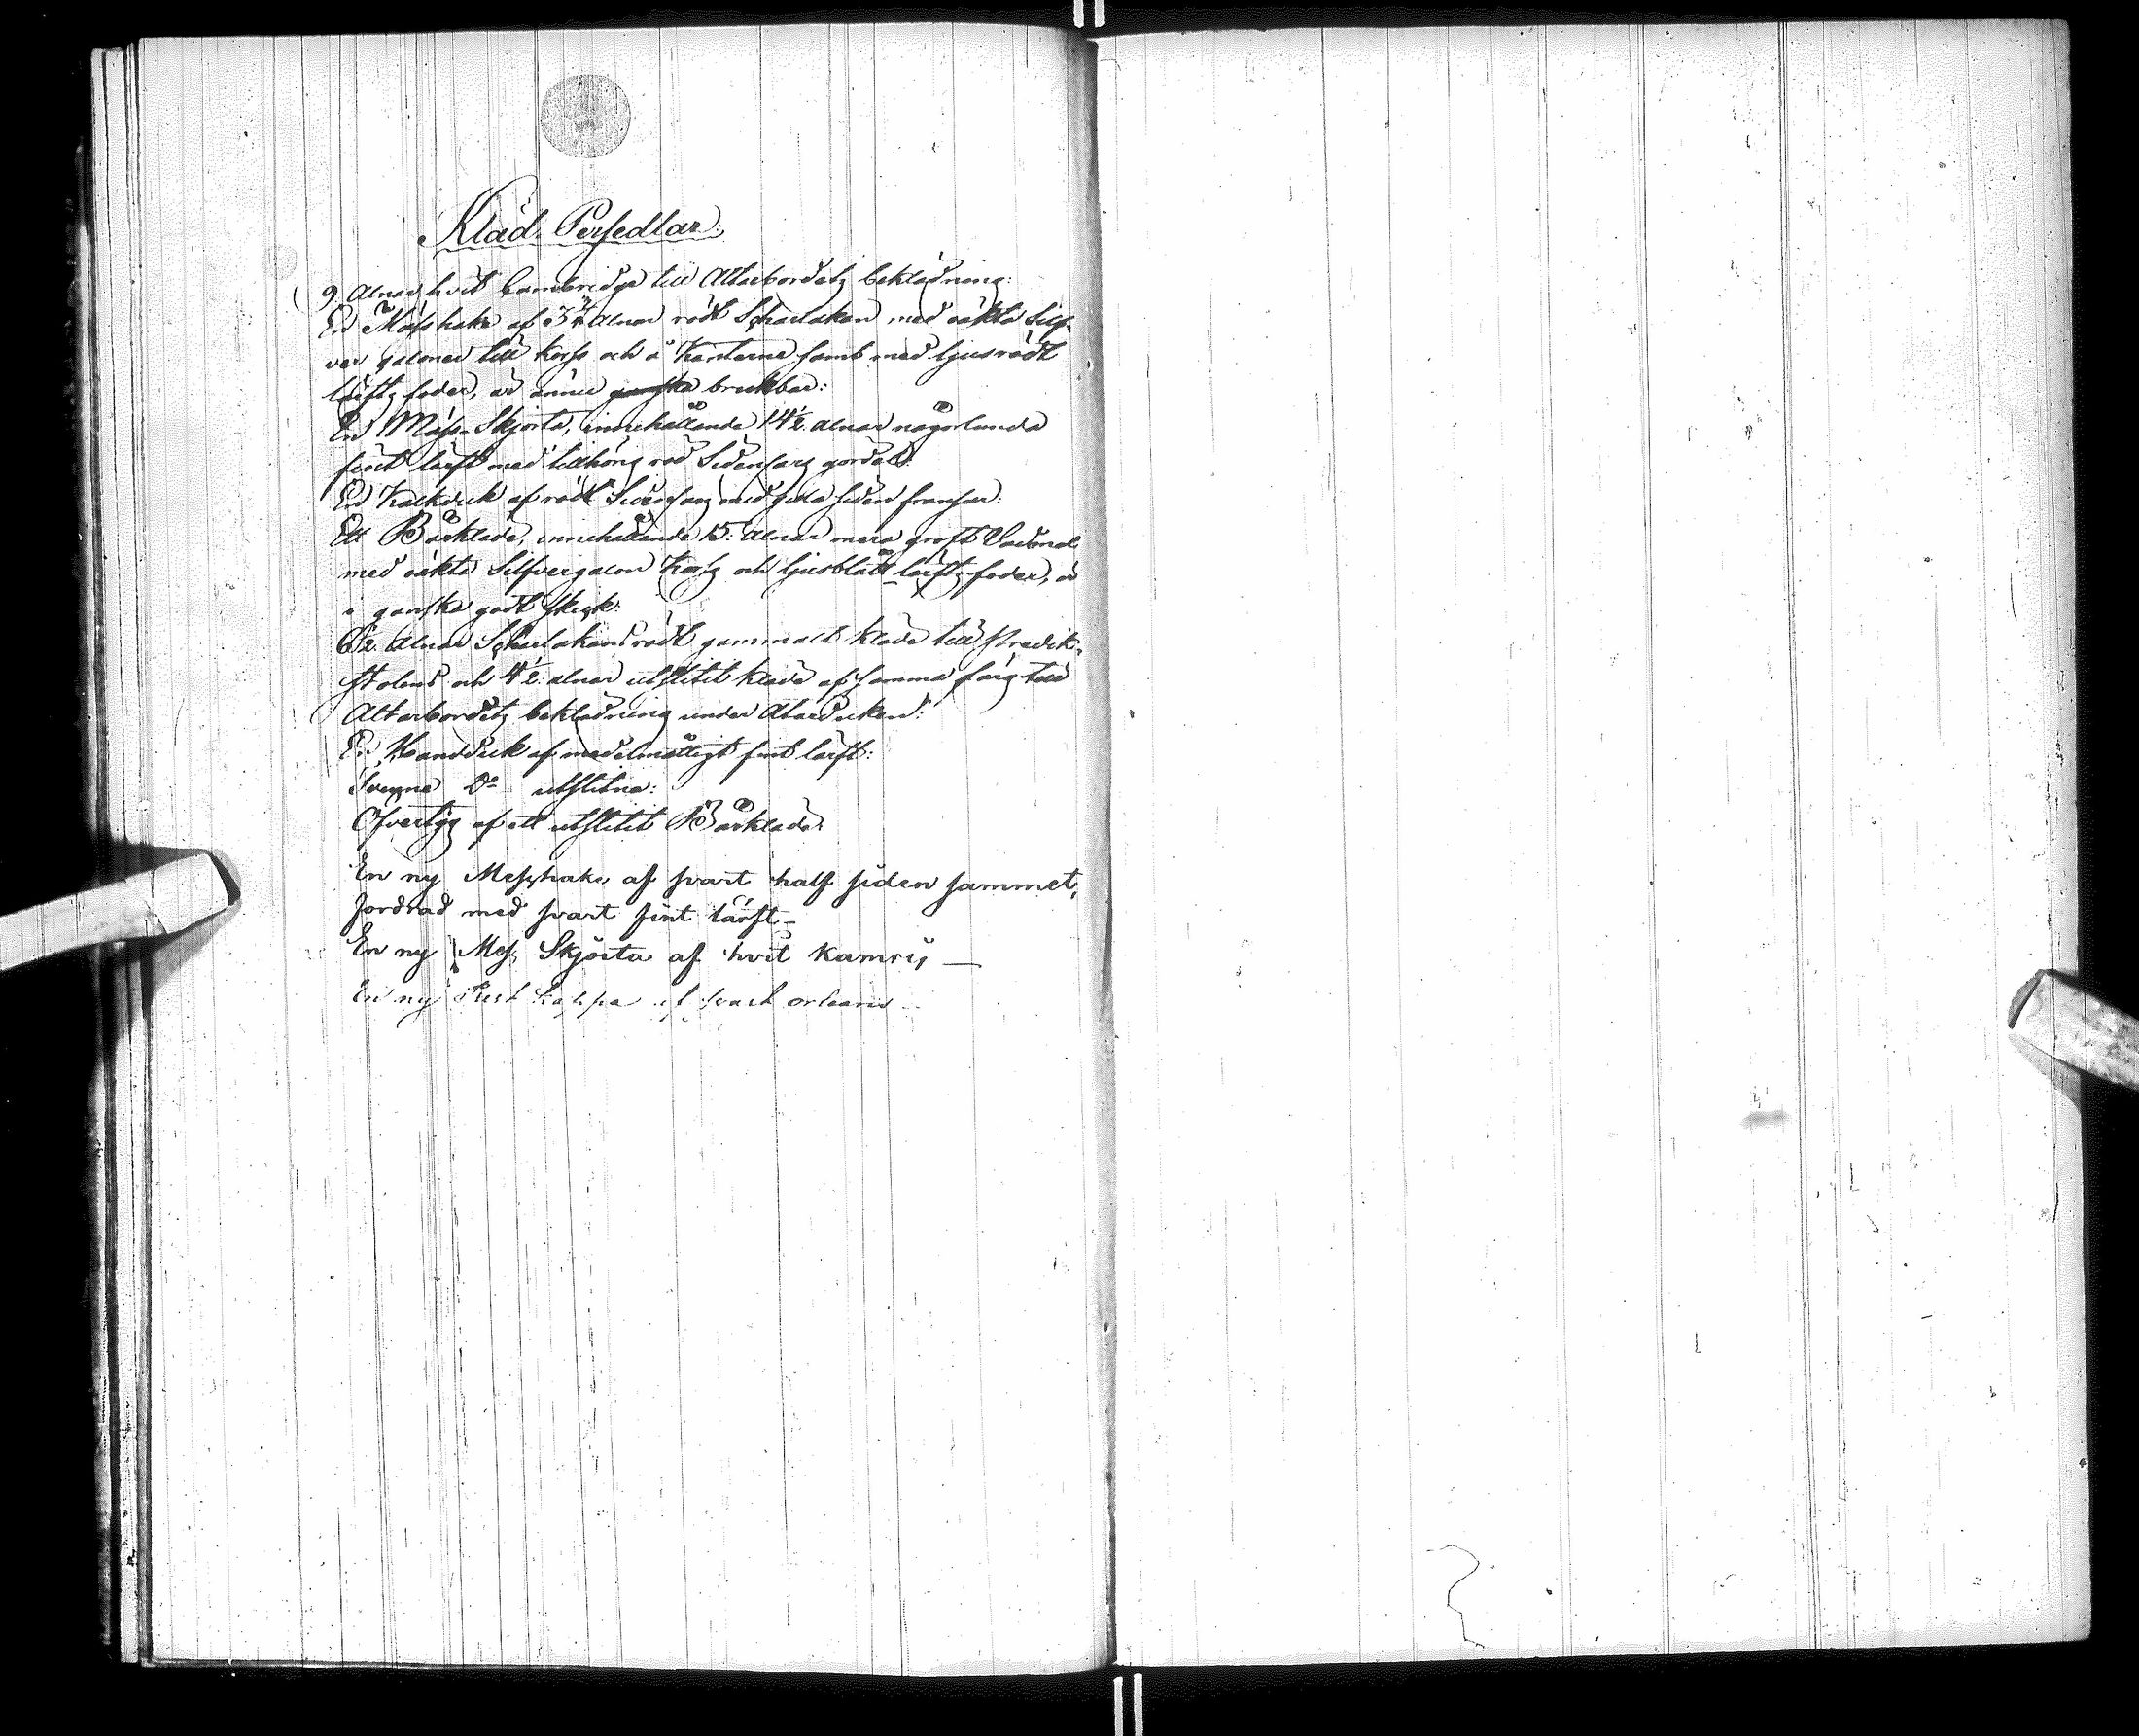 Kläd. Persedlar:
9. Alnar hvit Cambridge till Altarbordetz beklädning:
En Mässhake af 3¼ Alnar rödt Scharlakan med oäkta Silf-
ver galoner till Korss och å Kanterne samt med ljusrödt
lärftz foder, är ännu ganska brukbar:
En Mäss-Skjorta, innehållande 14½ alnar någorlunda
fint lärft med tillhörig röd Sidensarz gördel:
En Kalkduk af rödt Sidensarz med gula siden fransar:
Ett Bårkläde, innehållande 15: Alnar mera groft Vadmal
med oäkta Silfvergalon Korsz och ljusblått lärftz foder, är
i ganska godt skick:
6½ Alnar Scharlakansrödt gammalt kläde till Predik-
stolens och 4½ alnar utslitit kläde af samma färg till
Altarbordetz beklädning under Altarduken:
En Handduk af medelmåttigt fint lärft:
Tvenne Do utslitna:
Öfvertÿg af ett utslitit Bårkläde:
En ny Messhake af svart half siden sammet,
fordrad med svart fint lärft –
En ny Mess Skjorta af hvit Kamrij —
En ny Prest kappa af svart orleans –